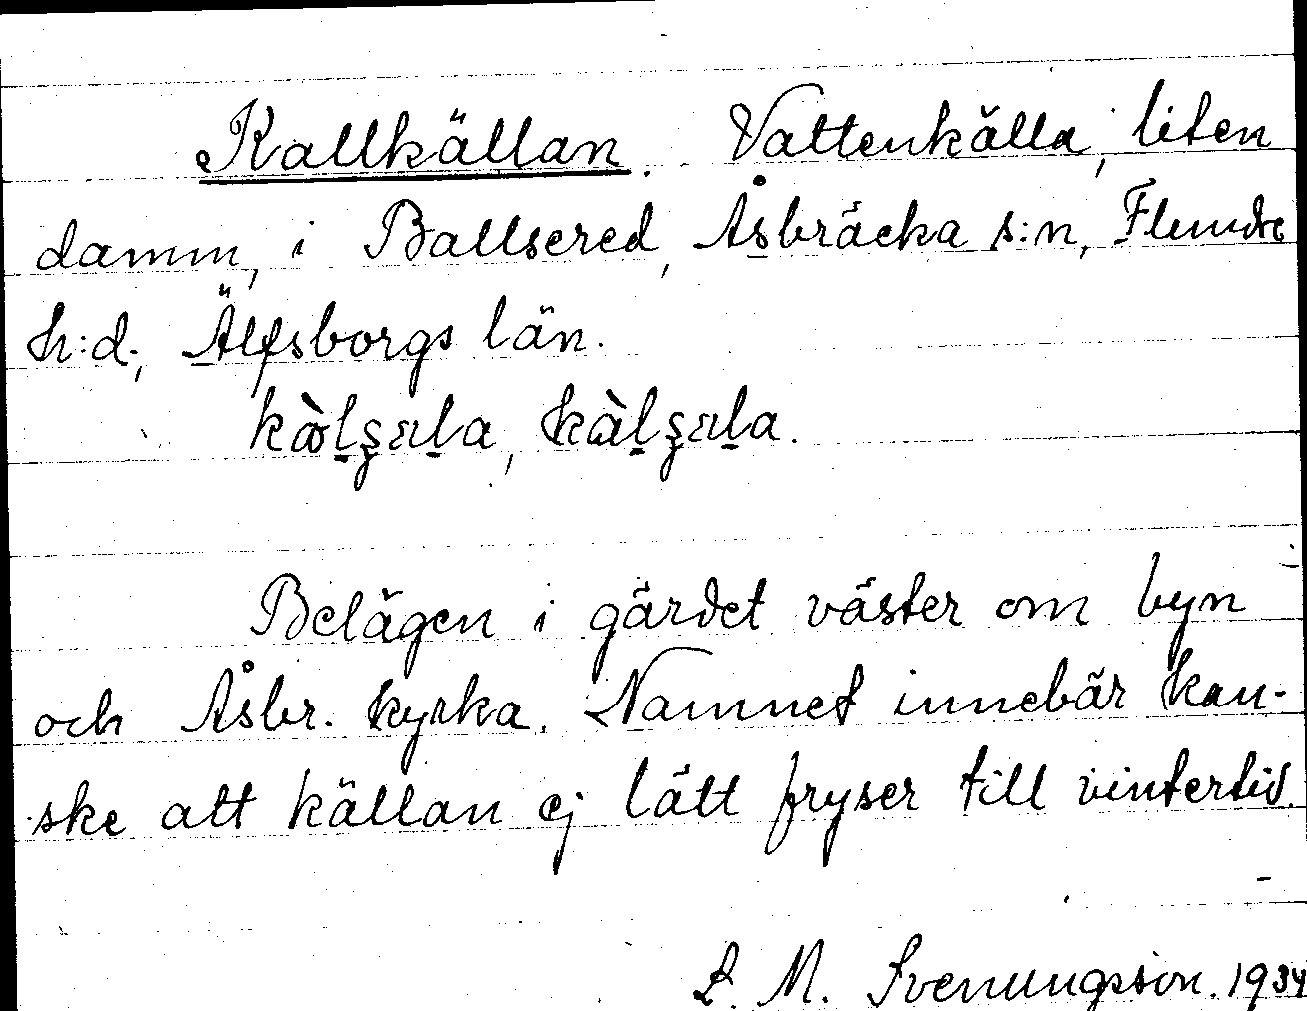 Kallkällan. Vattenkälla, liten
damm, i Ballsered, Åsbräcka s:n, Flundre
h:d., Älfsborgs län.
Belägen i gärdet väster om byn
och Åsbr. kyrka. Namnet innebär kan-
ske att källan ej lätt fryser till vintertid.
L. M. Svenungsson. 1934